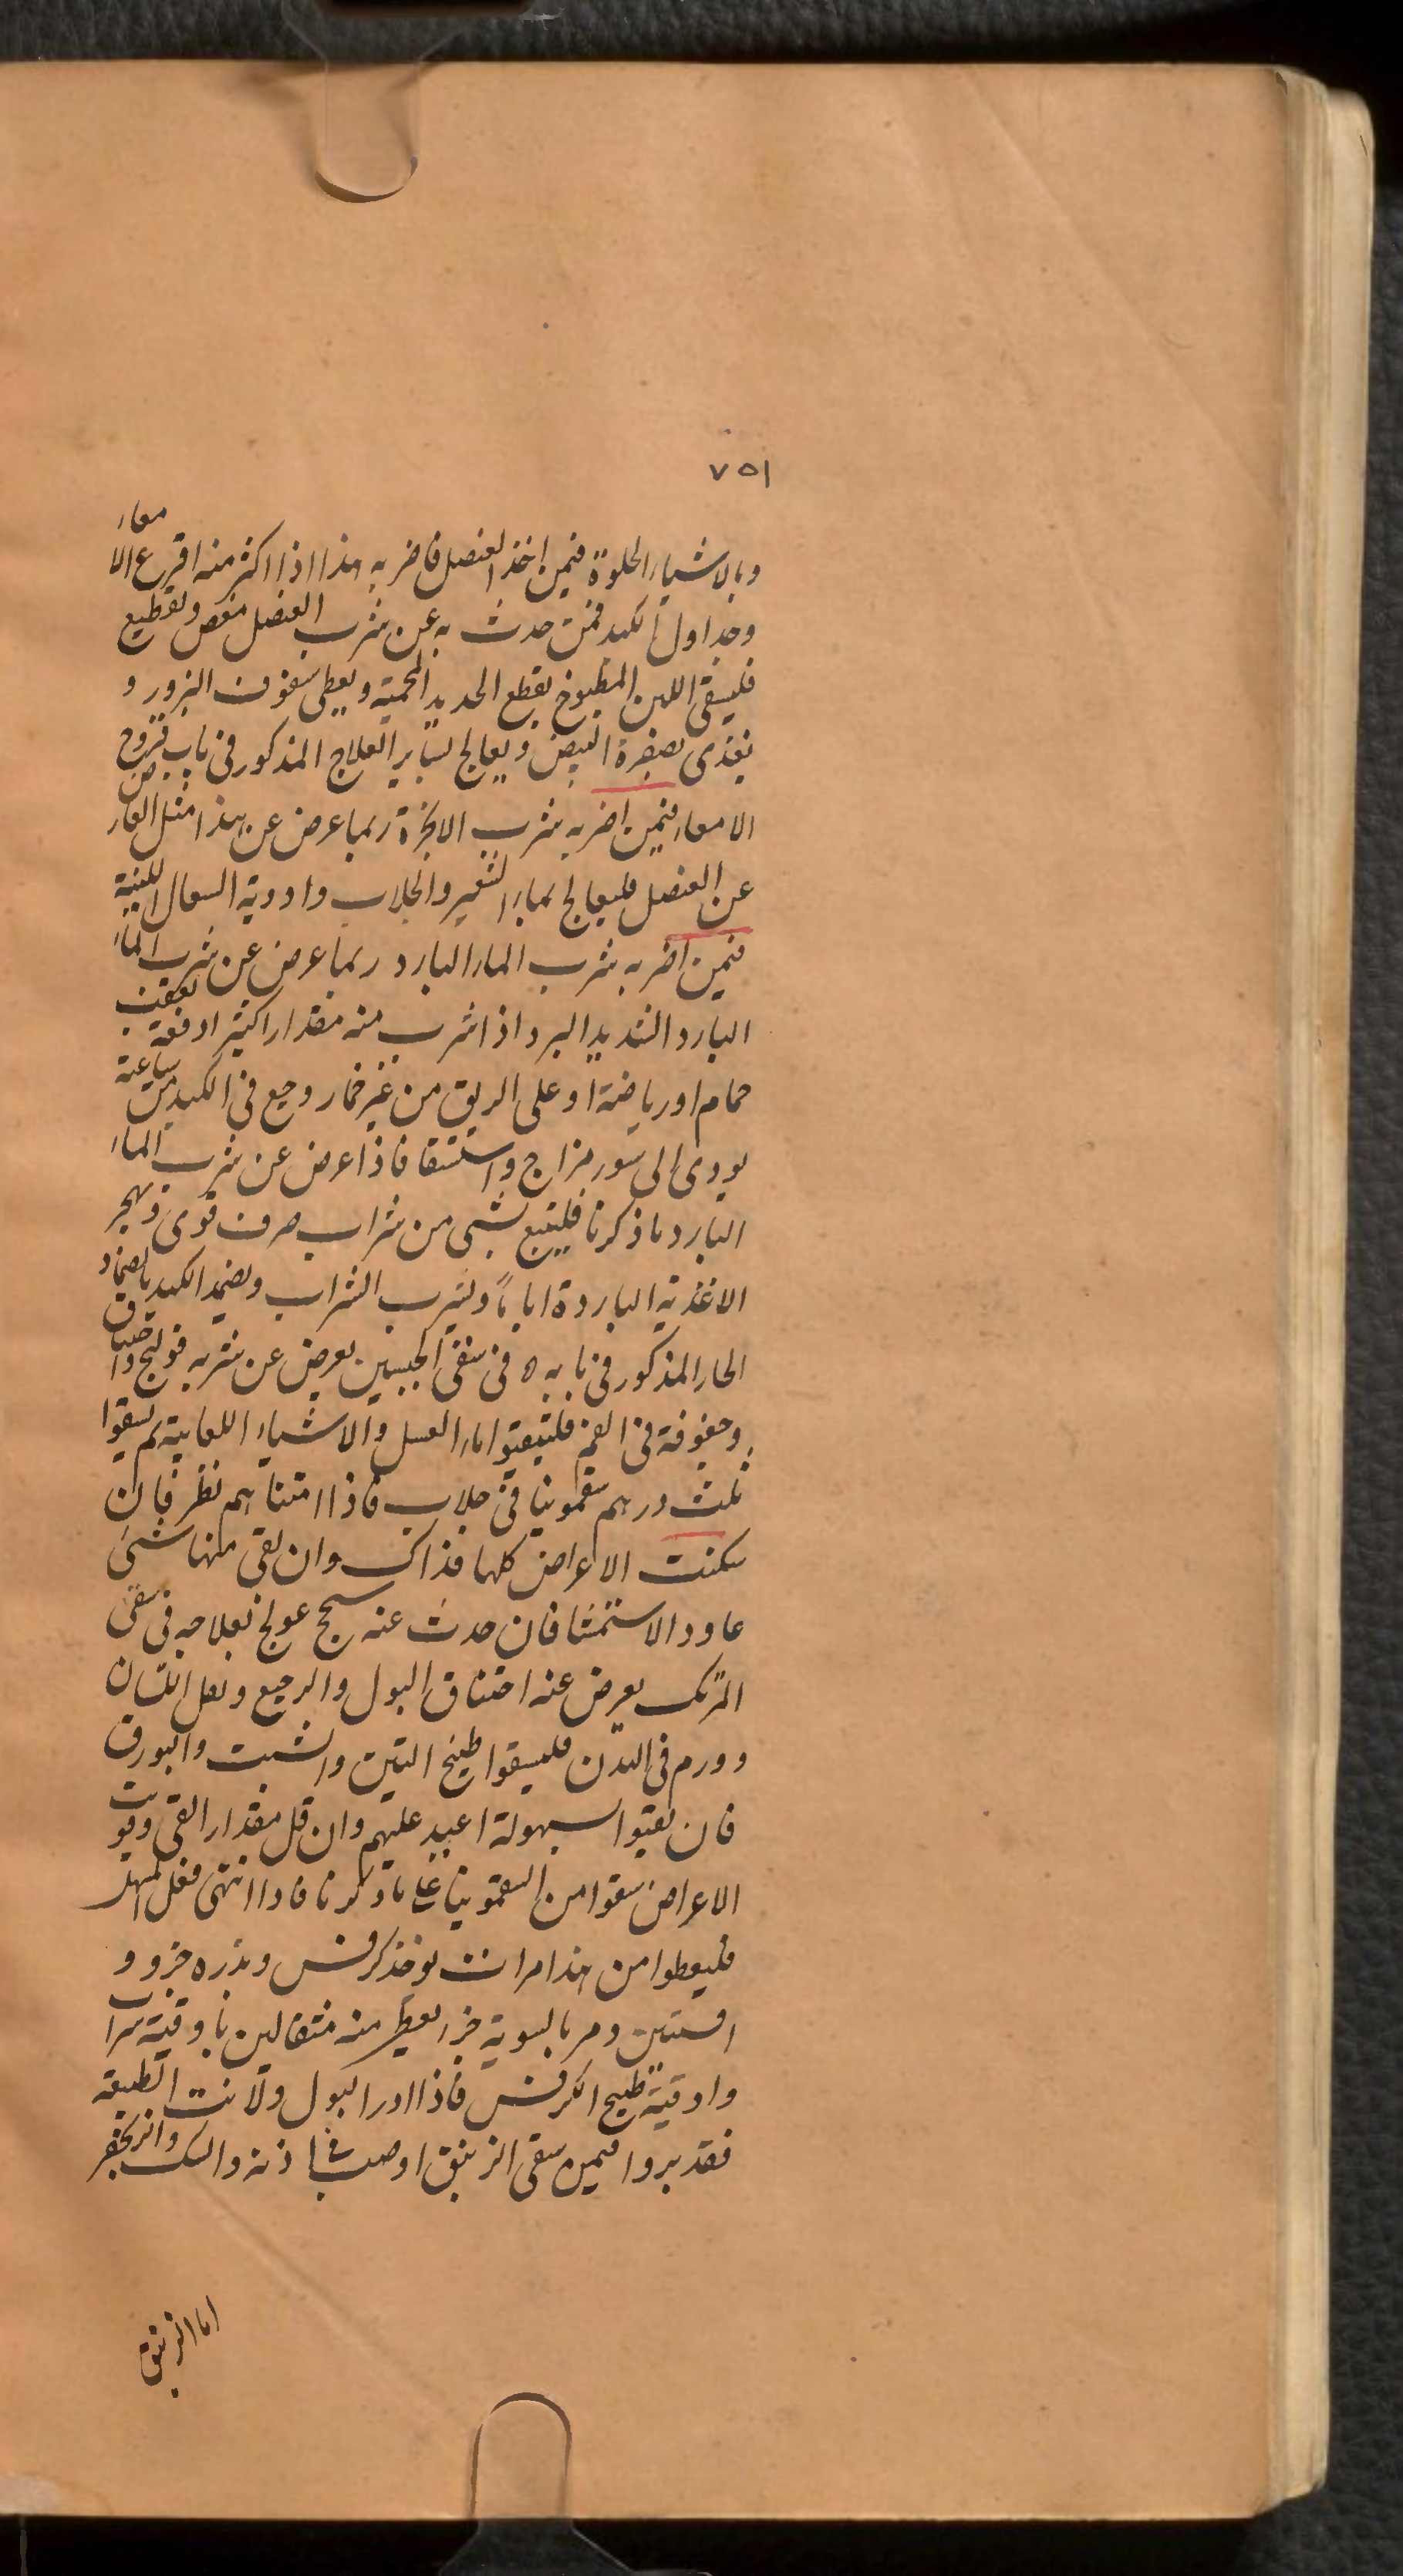 ٧٥١
وبالاشياء الحلوة فيمن اخذ العنصل فاضر به هذا اذا اكثر منه اقرع الامعاء
وجداول الكبد فمن حدث به عن شرب العنصل مغص وتقطيع
فليسقى اللبن المطبوخ بقطع الحديد المحمية ويعطى سفوف البزور و
يغذى بصفرة البيض ويعالج بساير العلاج المذكور فى باب قروح
الامعاء فيمن اضر به شرب الانجرة ربما عرض عن هذا مثل العارض
عن العنصل فليعالج بماء الشعير والجلاب وادوية السعال اللينة
فيمن اضر به شرب الماء البارد ربما عرض عن شرب الماء
البارد الشديد البرد اذا شرب منه مقدارا كثيرا دفعة بعقب
حمام او رياضة او على الريق من غير خمار وجع فى الكبد من ساعته
يودى الى سوء مزاج واستسقا فاذا عرض عن شرب الماء
البارد ما ذكرنا فليتبع بشى من شراب صرف قوى ويهجر
الاغذية الباردة اياما ويشرب الشراب ويضمد الكبد بالضماد
الحار المذكور فى بابه ٥ فى سقى الجبسين يعرض عن شربه قولنج واختناق
وجفوفة فى الفم فليتقيوا بماء العسل والاشياء اللعابية ثم يسقوا
ثلث درهم سقمونيا فى جلاب فاذا امشاهم نظر فان
سكنت الاعراض كلها فذاك وان بقى منها شئ
عاود الاستمشا فان حدث عنه سحج عولج بعلاجه فى سقى
المرتك يعرض عنه احتناق البول والرجيع وثقل اللسان
وورم فى البدن فليسقوا طبيخ التين والشبت والبورق
فان تقيوا بسهولة اعيد عليهم وان قل مقدار القى وقويت
الاعراض سقوا من السقمونيا على ما ذكرنا فاذا انتهى فعل المسهل
فليعطوا من هذا مرات يوخذ كرفس وبذره جزو و
افسنتين ومر بالسوية جزء يعطى منه مثقالين باوقية شراب
واوقية طبيخ الكرفس فاذا ادر البول ولانت الطبيعة
فقد بروا فيمن سقى الزيبق او صب فى اذنه والسك والزنجفر
اما الزيبق